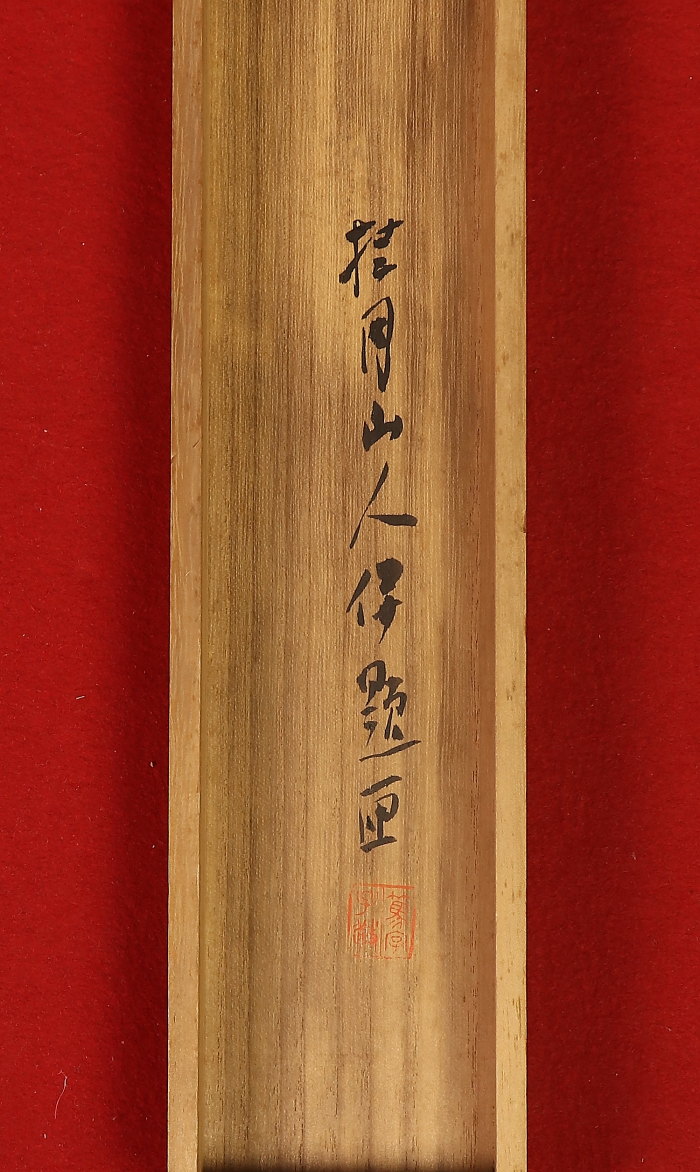 桂月山人併題匣